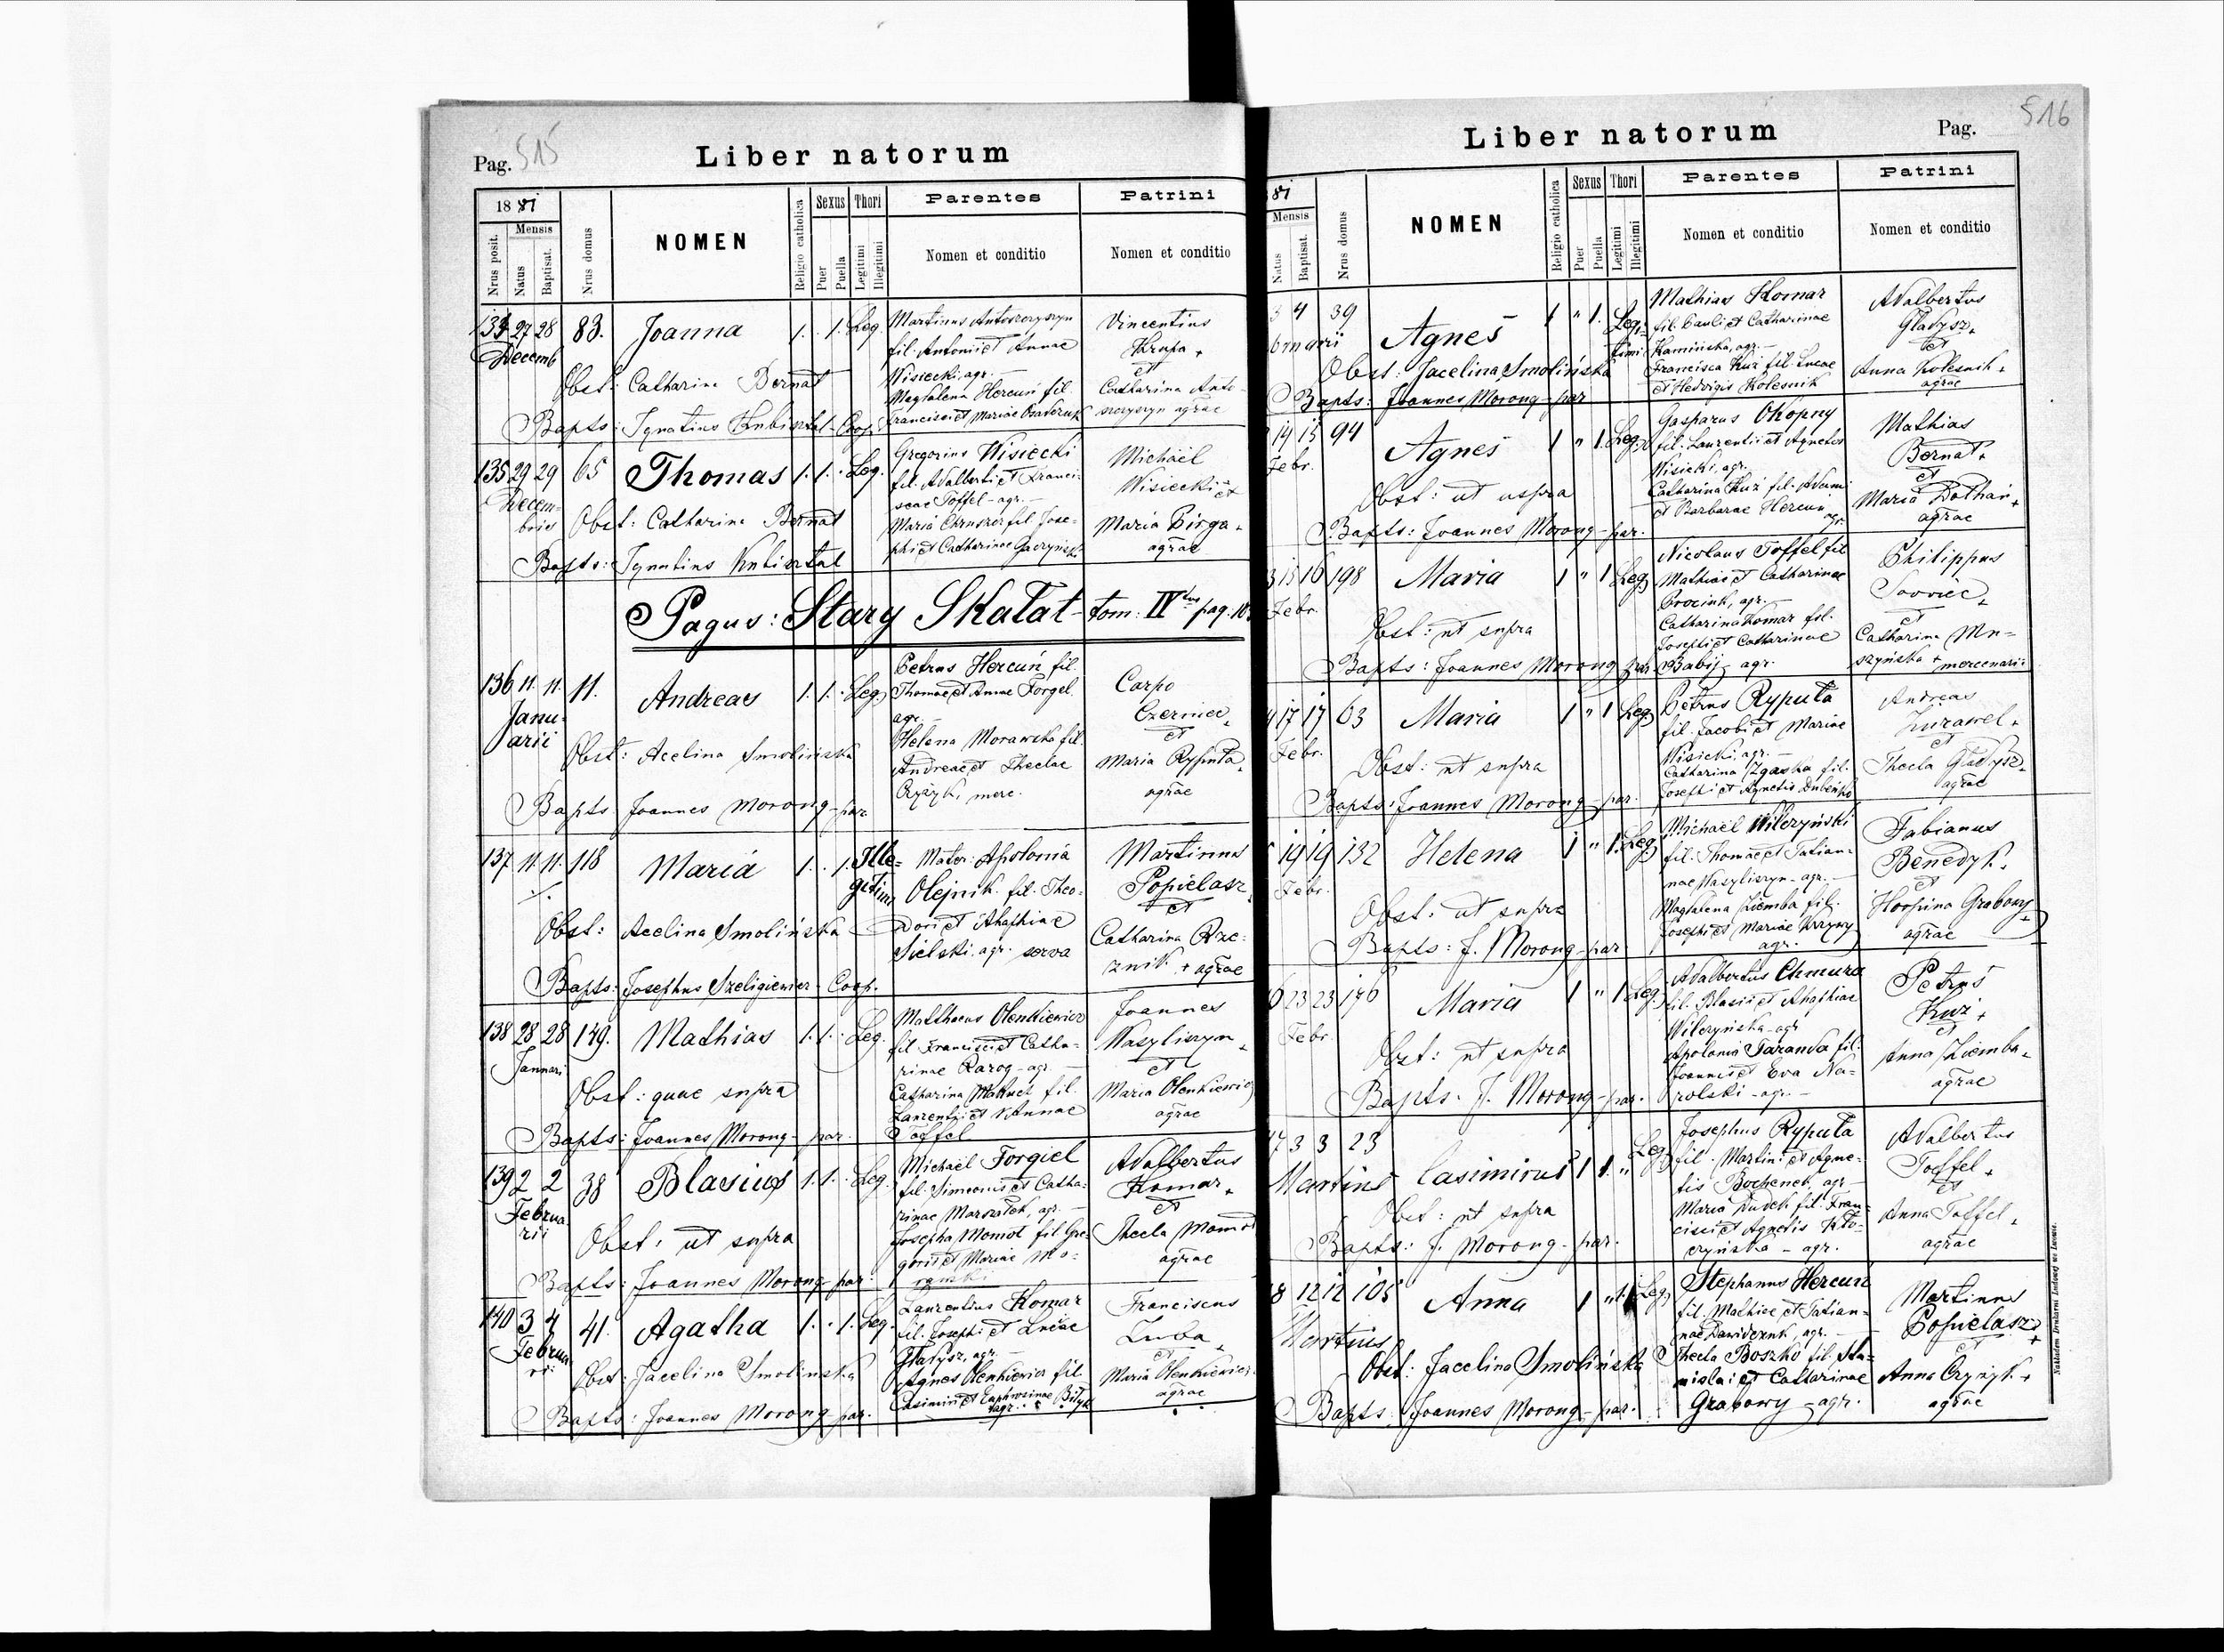 Pag. 515
Liber natorum
18 81
Nrus posit.
Mensis
Natus
Baptisat.
Nrus domus
NOMEN
Religio catholica
Sexus
Puer
Puella
Thori
Legitimi
Illegitimi
Parentes
Nomen et conditio
Patrini
Nomen et conditio
134 27 28 83. Joanna 1. . 1. Leg.
Decemb
fil. Antonii et Annae
Wisiecki, agr. —
Magdalena Hercuń fil.
Vincentius
Krupa +
et
Catharina Anto-
szczyszyn agrae
Obst: Catharine Bernat
Bapts: Ignatius Kubisztal - Coop.
135 29 29 65 Thomas 1. 1. . Leg.
Decem-
bris
Gregorius Wisiecki
fil. Adalberti et Franci-
scae Toffel - agr. —
phi et Catharinae
Michaël
Wisiecki + et
Maria Birga +
agrae
Obst: Catharine Bernat
Bapts: Ignatius Kubisztal
Pagus: Stary Skałat - tom: IV tus pag. 10
136 11. 11. 11. Andreas 1. 1. . Leg.
Janu-
arii
Petrus Hercuń fil.
Thomae et Annae Forgel
agr. —
Helena Morawska fil.
Andreae et Theclae
Czyżyk, merc.
Carpo
Czerniec +
et
Maria Rypuła +
agrae
Obst: Acelina Smolińska
Bapts Joannes Morong - par.
137 11. 11. 118 Maria 1. . 1. Ille-
gitim
Mater: Apolonia
Olejnik. fil. Theo-
dori et Ahaphiae
Sielski. agr. serva
Martinus
Popielasz +
et
Catharina Rze-
znik + agrae
Obst: Acelina Smolińska
Bapts: Josephus Szeligiewicz - Coop.
138 28 28 149. Mathias 1. 1. . Leg.
Januari
Matthaeus Olenkiewicz
fil. Francisci et Catha-
rinae Rarog - agr. —
Catharina fil.
Laurentii et Annae
Toffel
Joannes
Wasyliszyn +
et
Maria Olenkiewicz
agrae
Obst: quae supra
Bapts: Joannes Morong - par.
139 2 2 38 Blasius 1. 1. . Leg.
Februa-
rii
Michaël Forgiel
fil. Simeonis et Catha-
rinae Marszałek, agr. —
Josepha Momot fil. Gre-
gorii et Mariae Mo-
Adalbertus
Komar +
et
Thecla Momot
agrae
Obst: ut supra
Bapts: Joannes Morong - par.
140 3 4 41. Agatha 1. . 1. Leg.
Februa
rii
Laurentius Komar
fil. Josephi et Luciae
Gładysz, agr. —
Agnes Olenkiewicz fil
Casimiri et Euphrosinae Biłyk
agr.
Franciscus
Luba +
et
Maria Olenkiewicz
agrae
Obst: Jacelina Smolińska
Bapts: Joannes Morong - par.
Liber natorum
Pag. 516
81
Mensis
Natus
Baptisat.
Nrus domus
NOMEN
Religio catholica
Sexus
Puer
Puella
Thori
Legitimi
Illegitimi
Parentes
Nomen et conditio
Patrini
Nomen et conditio
3 4 39 Agnes 1 " 1. Legi-
timi
Mathias Komar
fil. Pauli et Catharinae
Kamińska, agr. —
Francisca Kuź fil. Lucae
et Hedvigis Kolesnik
Adalbertus
Gładysz +
et
Anna Kolesnik +
agrae
Obst: Jacelina Smolińska
Bapts: Joannes Morong - par
14 15 94 Agnes 1 " 1. Leg.
Febr.
Gasparus Okopny
fil. Laurentii et Agnetis
Wisiecki. agr.
Catharina Kuź fil. Adami
et Barbarae Hercuń
agr.
Mathias
Bernat +
et
Maria Dołhań +
agrae
Obst: ut uspra
Bapts: Joannes Morong - par.
15 16 198 Maria 1 " 1 Leg.
Febr.
Nicolaus Toffel fil
Mathiae et Catharinae
Prociuk, agr. —
Catharina Komar fil.
Josephi et Catharinae
Babij agr.
Philippus
et
Catharina Mu-
szyńska + mercenari
Obst: ut supra
Bapts: Joannes Morong par
17 17 63 Maria 1 " 1 Leg.
Febr.
Petrus Rypuła
fil. Jacobi et Mariae
Wisiecki, agr. —
Catharina Zgaska fil.
Josephi et Agnetis
Andreas
Żurawel +
et
Thecla Gładysz +
agrae
Obst: ut supra
Bapts: Joannes Morong - par.
19 19 132 Helena 1 " 1. Leg.
Febr.
Michaël Wilczyński
fil. Thomae et Tatian-
nae Wasyliszyn - agr. —
Magdalena Ziemba fil.
Josephi et Mariae Krzywy
agr.
Fabianus
Benedyk +
et
Horpina Grabowy +
agrae
Obst: ut supra
Bapts: J. Morong - par.
23 23 176 Maria 1 " 1 Leg.
Febr.
Adalbertus Chmura
fil. Blasii et Ahaphiae
Wilczyńska - agr
Apolonia Taranda fil.
Joannis et Eva Na-
rolski - agr. —
Petrus
Kuź +
et
Anna Ziemba +
agrae
Obst: ut supra
Bapts. J. Morong - par.
3 3 23 Casimirus 1 1. " Leg.
Martius
Josephus Rypuła
fil. Martini et Agne-
tis Bochenek, agr —
Maria Dudek fil. Fran-
cisci et Agnetis
czyńska - agr.
Adalbertus
Toffel +
et
Anna Toffel +
agrae
Obst: ut supra
Bapts: J. Morong - par.
12 12 105 Anna 1 " 1 Leg.
Martius
Stephanus Hercuń
fil. Mathiae et Tatian-
nae Dawidczuk, agr. —
Thecla Boszko fil. Sta-
nislai et Catharinae
Grabowy - agr.
Martinus
Popielasz +
et
Anna Czyżyk +
agrae
Obst: Jacelina Smolińska
Bapts: Joannes Morong - par.
Nakładem Drukarni Ludowej we Lwowie.